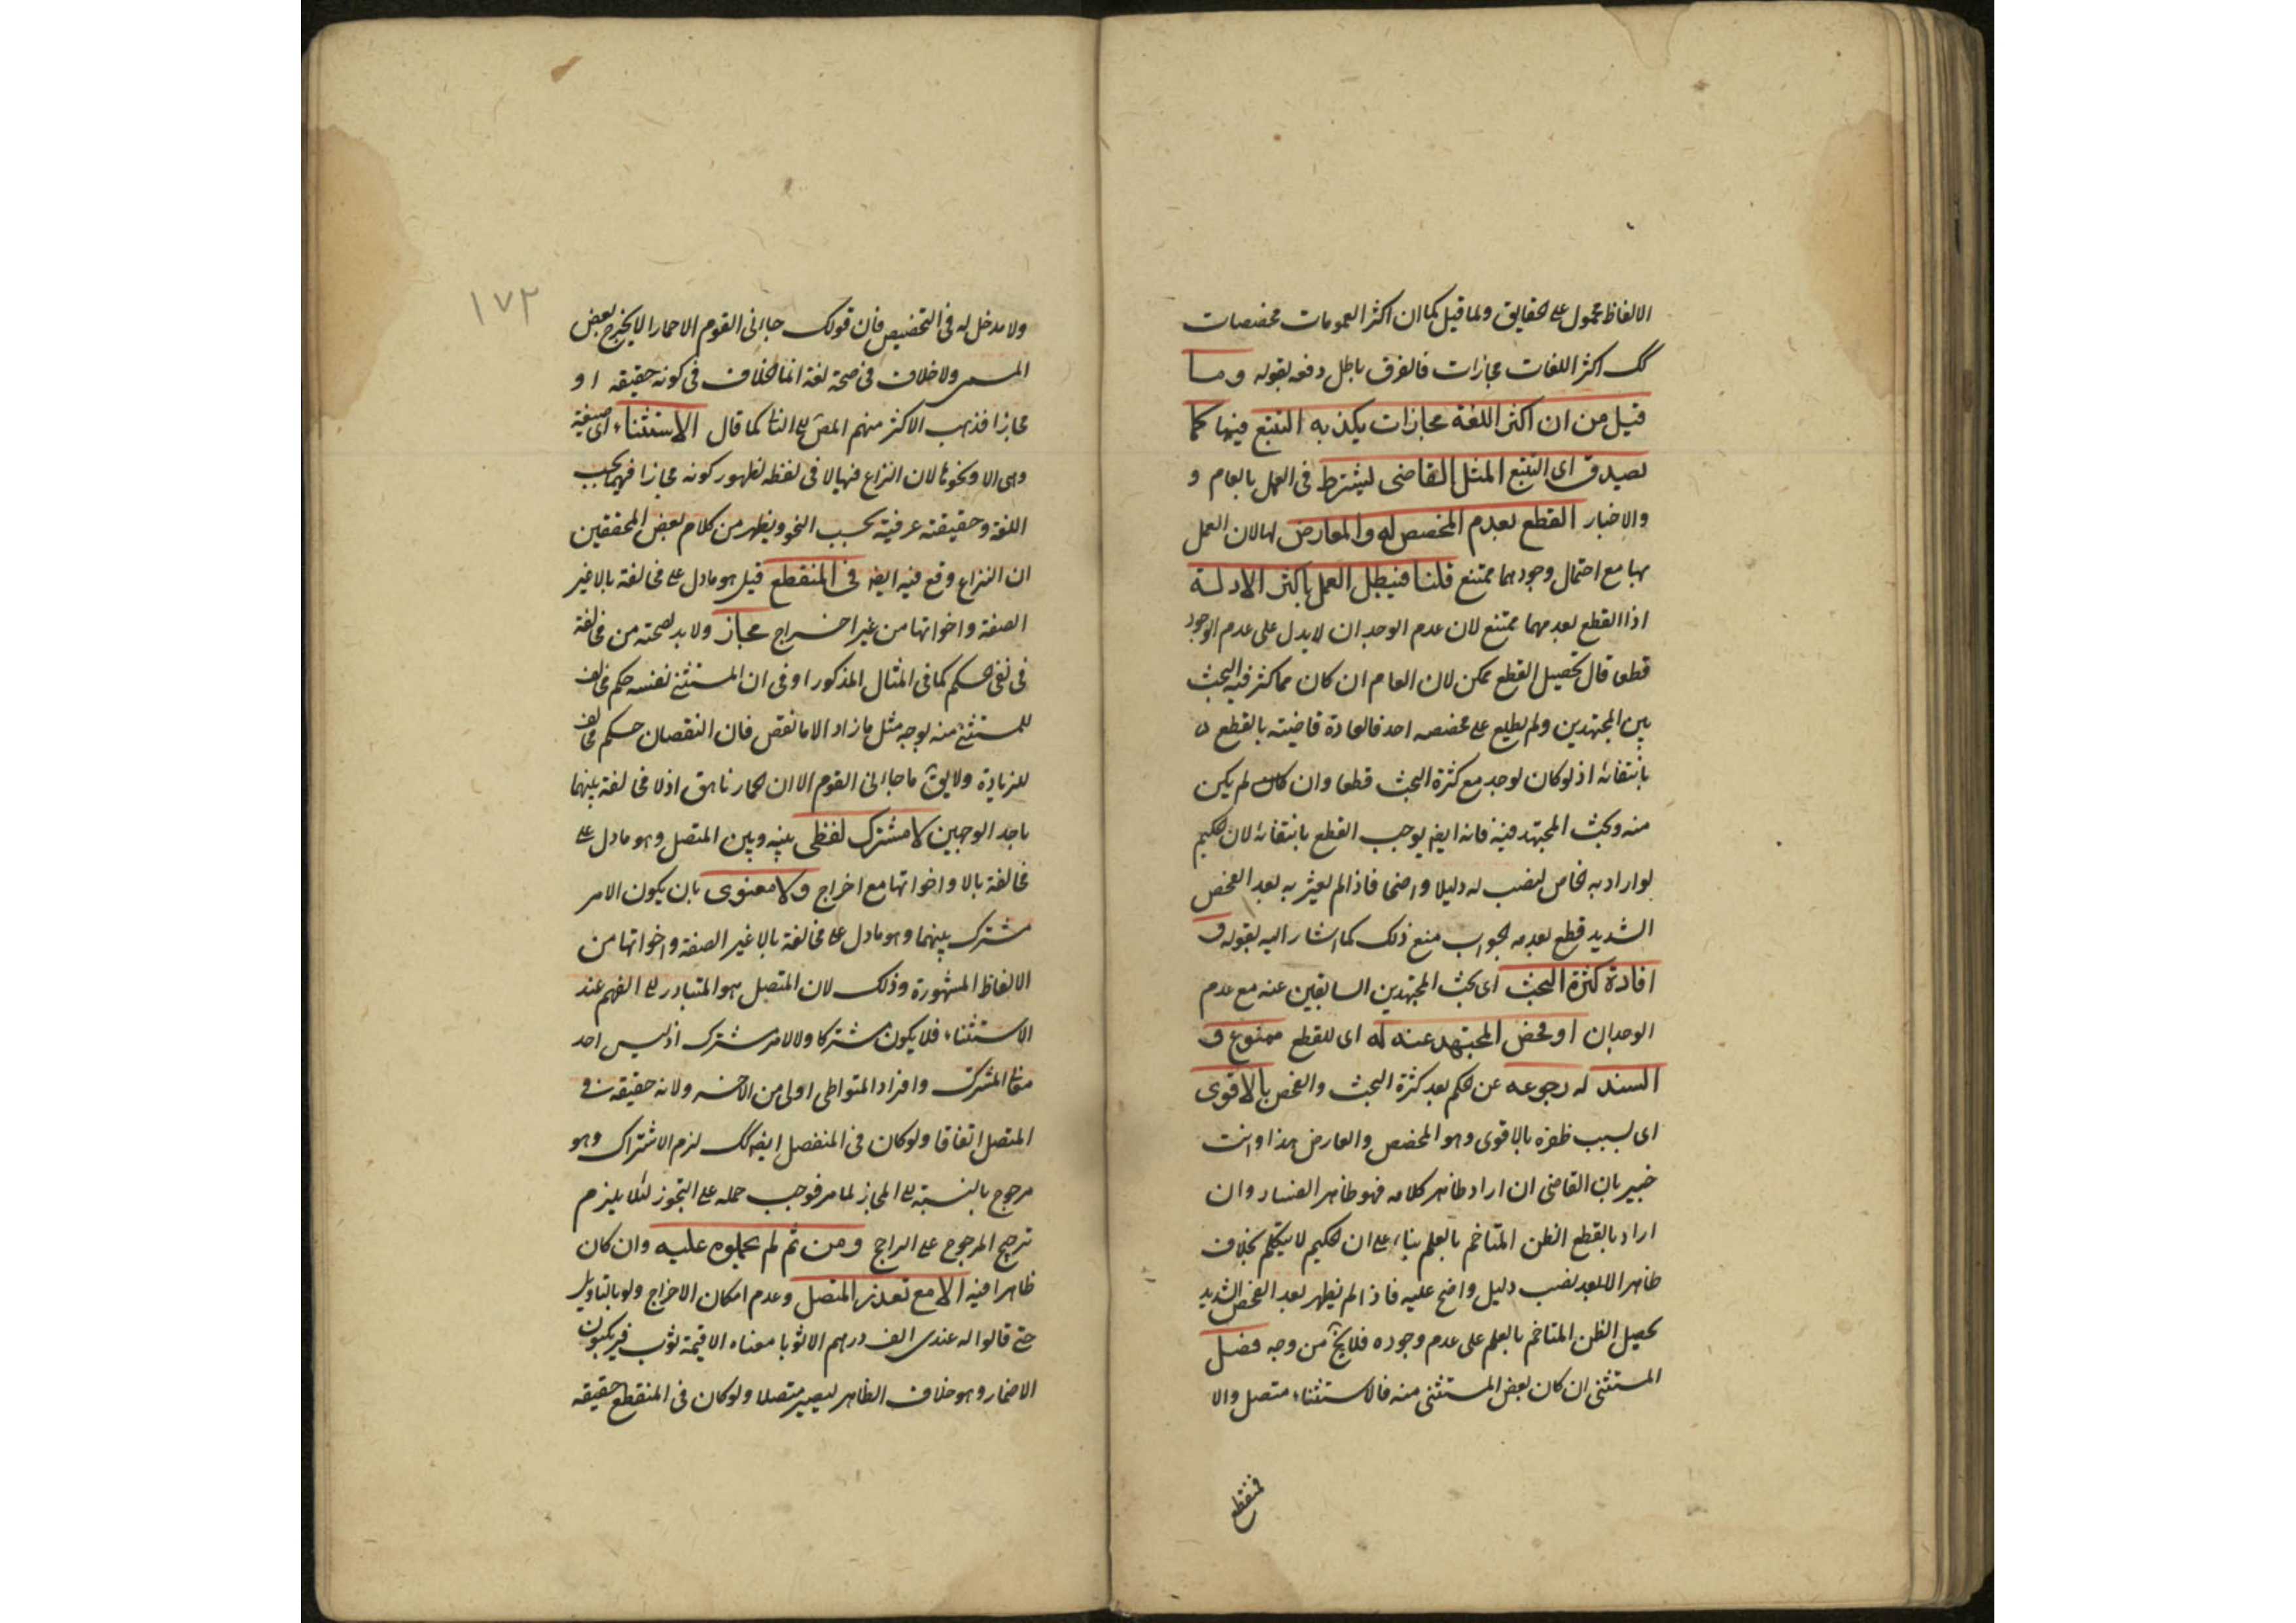 الالفاظ محمول على الحقايق ولما قيل كما ان اكثر العمومات مخصصات
كك اكثر اللغات مجازات فالفرق باطل دفعه بقوله وما
قيل من ان اكثر اللغة مجازات يكذبه التتبع فيها كما
يصدق اى التتبع المثل القاضى يشترط فى العمل بالعام و
والاخبار القطع بعدم المخصص له والمعارض لها لان العمل
بها مع احتمال وجودهما ممتنع قلنا فيبطل العمل باكثر الادلة
اذ القطع بعدمهما ممتنع لان عدم الوجدان لا يدل على عدم الوجود
قطعا قال تحصيل القطع ممكن لان العام ان كان مما كثر فيه البحث
بين المجتهدين ولم يطلع على مخصصه احد فالعادة قاضية بالقطع
بانتفائه اذ لو كان لوجد مع كثرة البحث قطعا وان كان لم يكن
منه وبحث المجتهد فيه فانه ايضا يوجب القطع بانتفائه لان الحكيم
لو اراد به الخاص لنصب له دليلا واضحا فاذا لم يعثر به بعد الفحص
الشديد قطع بعدمه الجواب منع ذلك كما اشار اليه بقوله و
افادة كثرة البحث اى بحث المجتهدين السابقين عنه مع عدم
الوجدان او فحص المجتهد عنه له اى للقطع ممنوع و
السند له رجوعه عن الحكم بعد كثرة البحث والفحص بالاقوى
اى بسبب ظفره بالاقوى وهو المخصص والمعارض هذا وانت
خبير بان القاضى ان اراد ظاهر كلامه فهو ظاهر الفساد وان
اراد بالقطع الظن المتاخم بالعلم بناء على ان الحكيم لا يتكلم بخلاف
ظاهر الا بعد نصب دليل واضح عليه فاذا لم يظهر بعد الفحص الشديد
يحصل الظن المتاخم بالعلم على عدم وجوده فلا يخ من وجه فصل
المستثنى ان كان بعض المستثنى منه فالاستثناء متصل والا
فمنقطع
١٧٢
ولا مدخل له فى التخصيص فان قولك جاءنى القوم الا حمارا لا يخرج بعض
المسمى ولا خلاف فى صحة لغة انما الخلاف فى كونه حقيقه او
مجازا فذهب الاكثر منهم المص الى الثانى كما قال الاستثناء اى صيغة
وهى الا ونحوها لان النزاع فيها لا فى لفظه لظهور كونه مجازا فيهما بحسب
اللغة وحقيقة عرفية بحسب النحو ويظهر من كلام بعض المحققين
ان النزاع وقع فيه ايضا فى المنقطع قيل هو ما دل على مخالفة بالا غير
الصفة واخواتها من غير اخراج مجاز ولا بد لصحته من مخالفة
فى نفى الحكم كما فى المثال المذكور او فى ان المستثنى نفسه حكم مخالف
للمستثنى منه بوجه مثل ما زاد الا ما نقص فان النقصان حكم مخالف
للزيادة ولا يق ما جاءنى القوم الا ان الحمار ناهق اذ لا مخالفة بينهما
باحد الوجهين لا مشترك لفظى بينه وبين المتصل وهو ما دل على
مخالفة بالا واخواتها مع اخراج ولا معنوى بان يكون الامر
مشترك بينهما وهو ما دل على مخالفة بالا غير الصفة واخواتها من
الالفاظ المشهورة وذلك لان المتصل هو المتبادر الى الفهم عند
الاستثناء فلا يكون مشتركا ولا لامر مشترك اذ ليس احد
معانى المشترك وافراد المتواطى اولى من الاخر ولانه حقيقه فى
المتصل اتفاقا ولو كان فى المنفصل ايضا كك لزم الاشتراك وهو
مرجوح بالنسبة الى المجاز لما مر فوجب حمله على التجوز لئلا يلزم
ترجيح المرجوح على الراجح ومن ثم لم يحملوه عليه وان كان
ظاهرا فيه الا مع تعذر المتصل وعدم امكان الاخراج ولو بالتاويل
حتى قالوا له عندى الف درهم الا ثوبا معناه الا قيمة ثوب فيرتكبون
الاضمار وهو خلاف الظاهر ليصير متصلا ولو كان فى المنقطع حقيقه